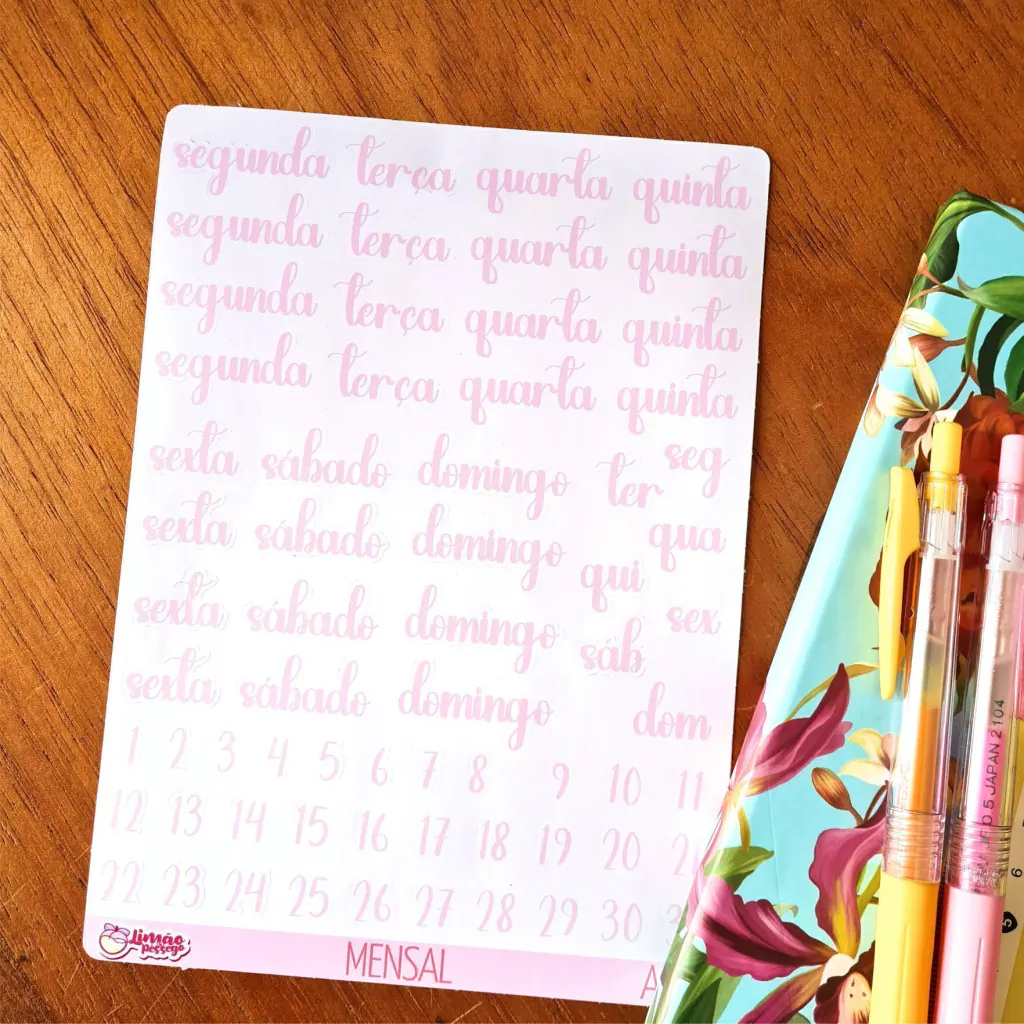 segunda terça quarta quinta
segunda terça quarta quinta
segunda terça quarta quinta
segunda terça quarta quinta
sexta sábado domingo ter seg
sexta sábado domingo qui qua
sexta sábado domingo sáb sex
sexta sábado domingo dom
1 2 3 4 5 6 7 8 9 10 11
12 13 14 15 16 17 18 19 20
22 23 24 25 26 27 28 29 30
Limão Pêssego
MENSAL A
0.5 JAPAN 2104
6
5